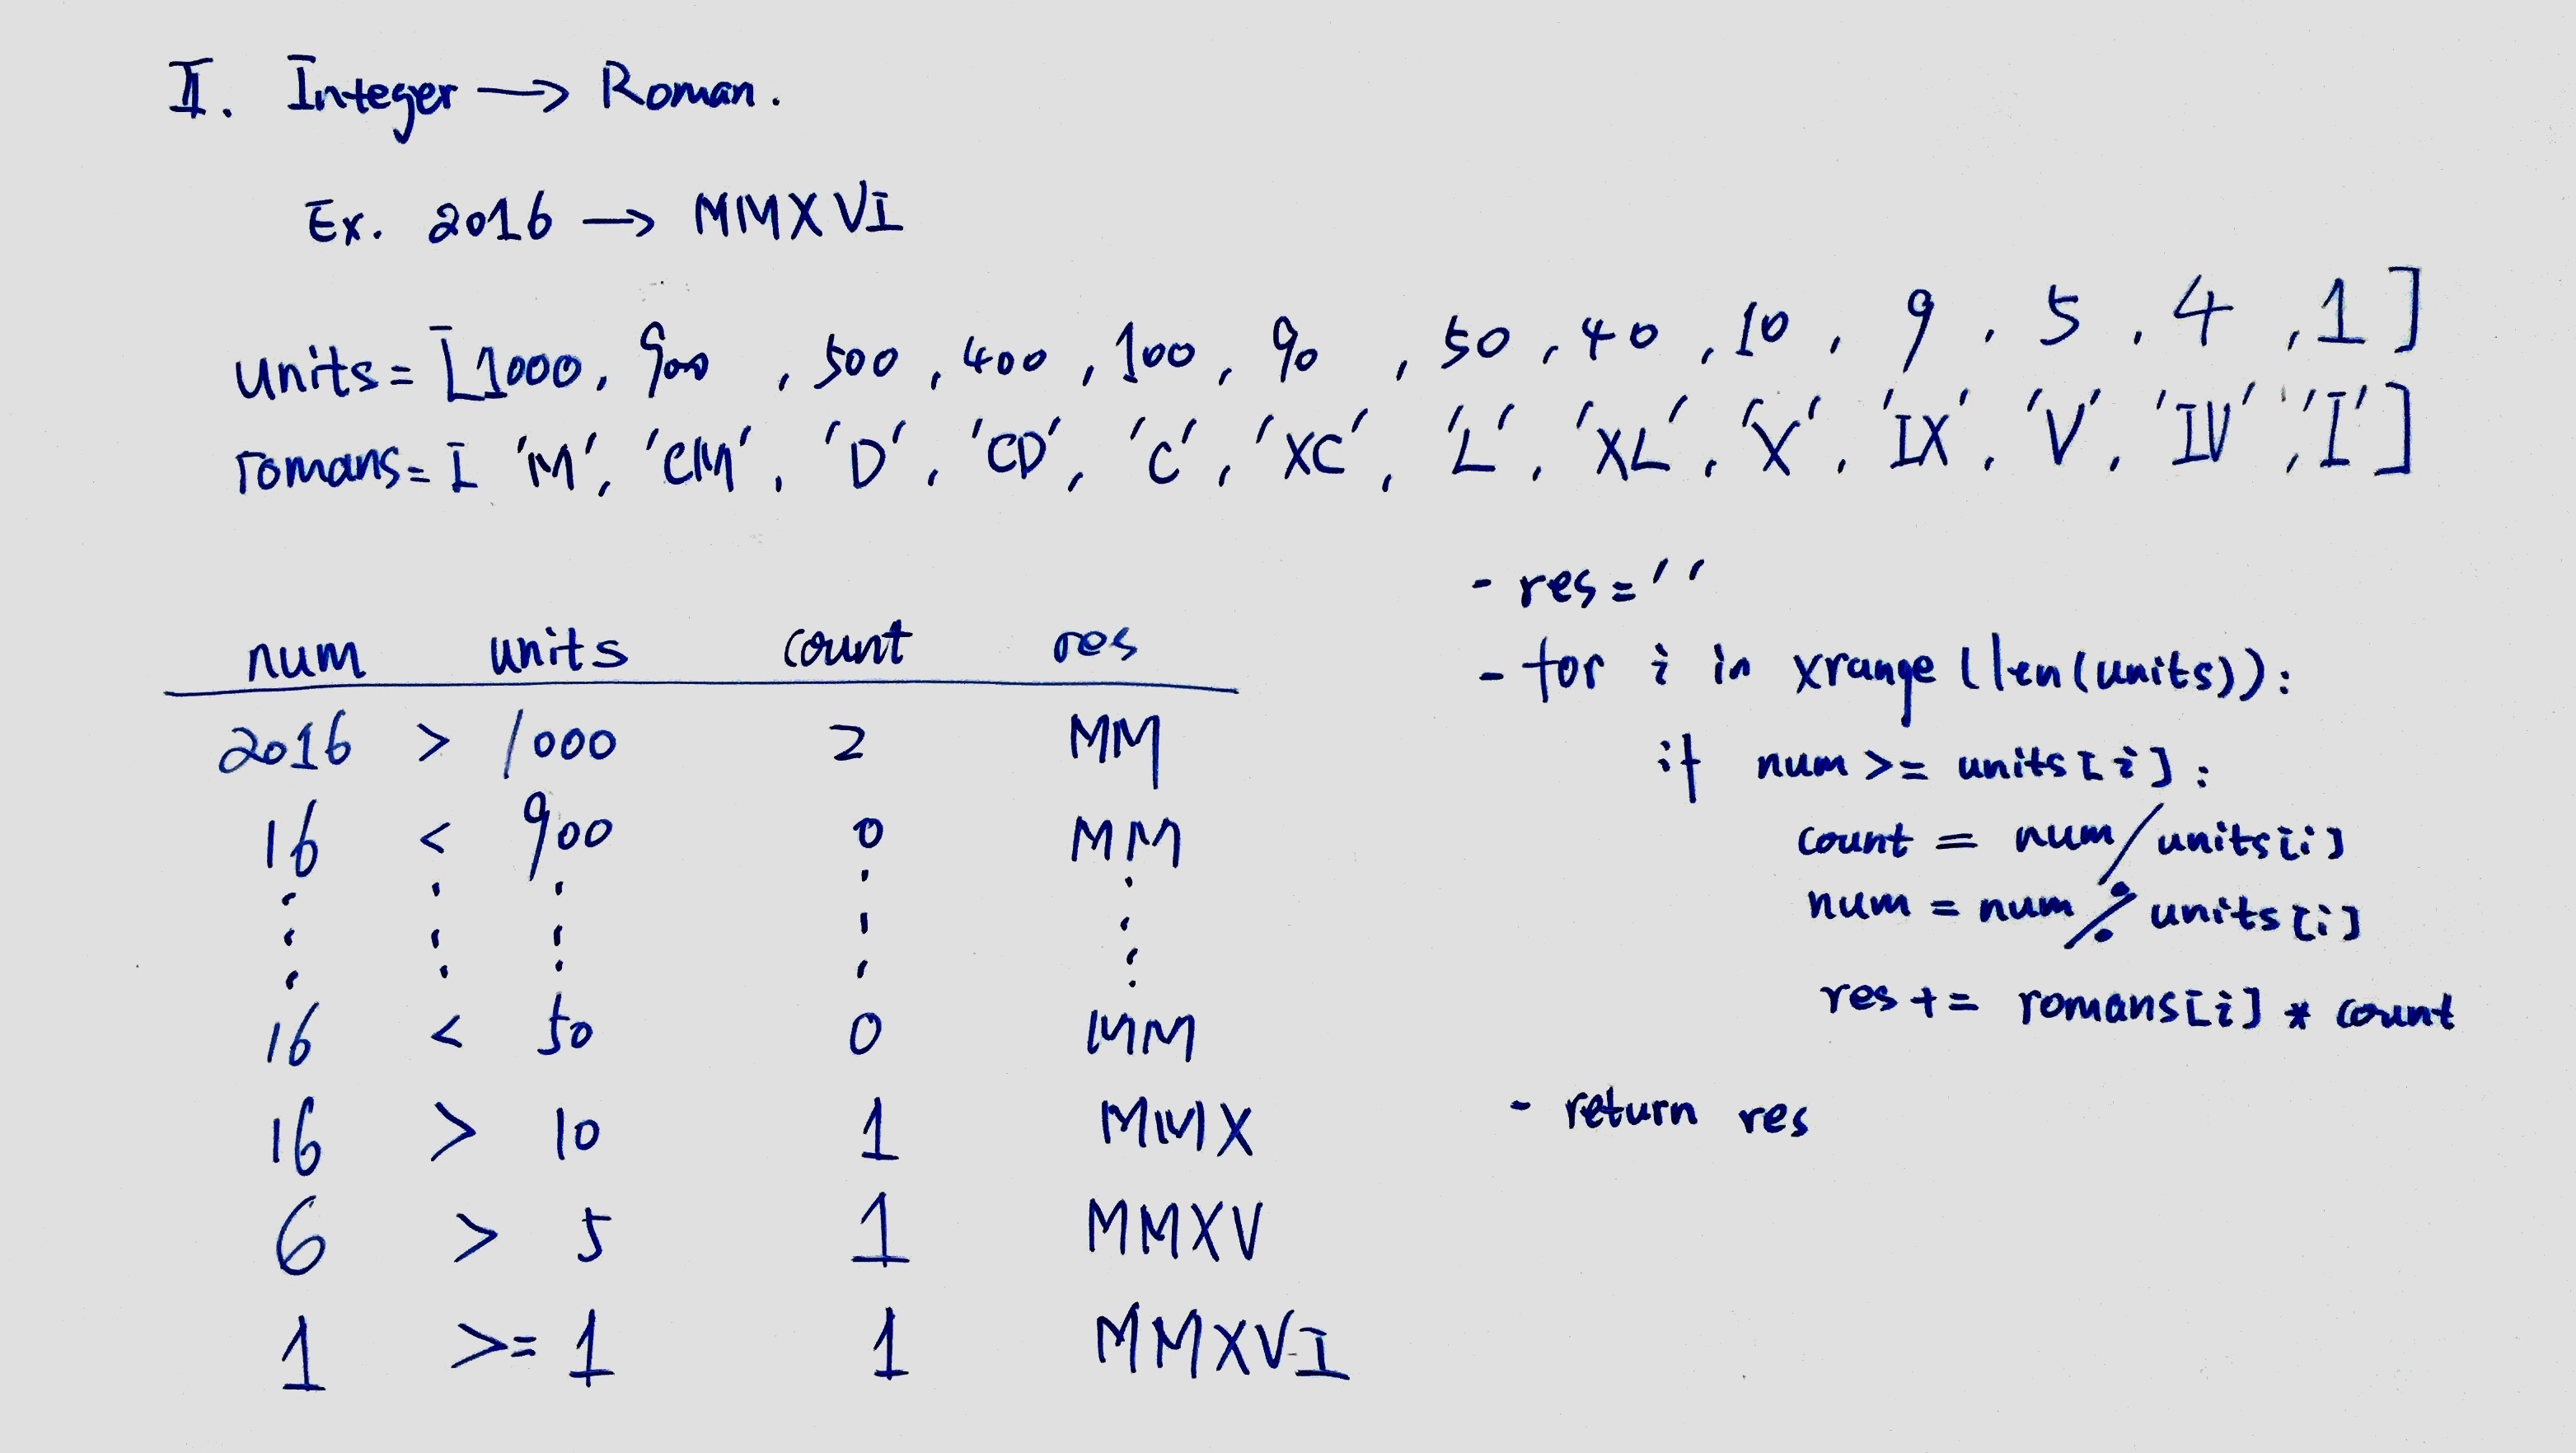 II. Integer → Roman.
Ex. 2016 → MMXVI
units = [1000, 900, 500, 400, 100, 90, 50, 40, 10, 9, 5, 4, 1]
romans = ['M', 'CM', 'D', 'CD', 'C', 'XC', 'L', 'XL', 'X', 'IX', 'V', 'IV', 'I']
num units count res
2016 > 1000 2 MM
16 < 900 0 MM
16 < 50 0 MM
16 > 10 1 MMX
6 > 5 1 MMXV
1 >= 1 1 MMXVI
- res = ''
- for i in xrange(len(units)):
if num >= units[i]:
count = num/units[i]
num = num % units[i]
res += romans[i] * count
- return res